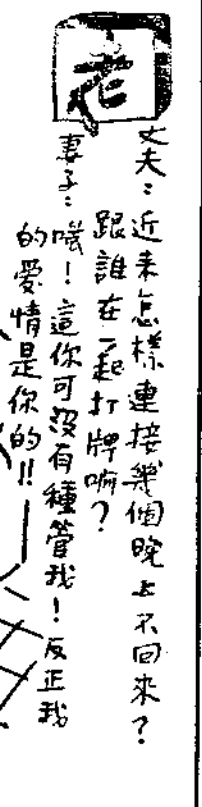 老
丈夫：近来怎樣連接幾個晚上不回來？
跟誰在一起打牌嘛？
妻子：嗤！這你可没有種管我！反正我
的愛情是你的!!